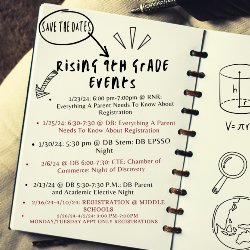 SAVE THE DATES
RISING 9TH GRADE
EVENTS
1/23/24: 6:00 pm-7:00pm @ RNR:
Everything A Parent Needs To Know About
Registration
1/25/24: 6:30-7:30 @ DB: Everything A Parent
Needs To Know About Registration
1/30/24: 5:30 pm @ DB Stem: DB EPSSO
Night
2/6/24 @ DB 6:00-7:30 CTE: Chamber of
Commerce: Night of Discovery
2/13/24 @ DB 5:30-7:30 P.M.: DB Parent
and Academic Elective Night
REGISTRATION @ MIDDLE
SCHOOLS
MONDAY/TUESDAY APPT ONLY REGISTRATIONS
h
r
V = π